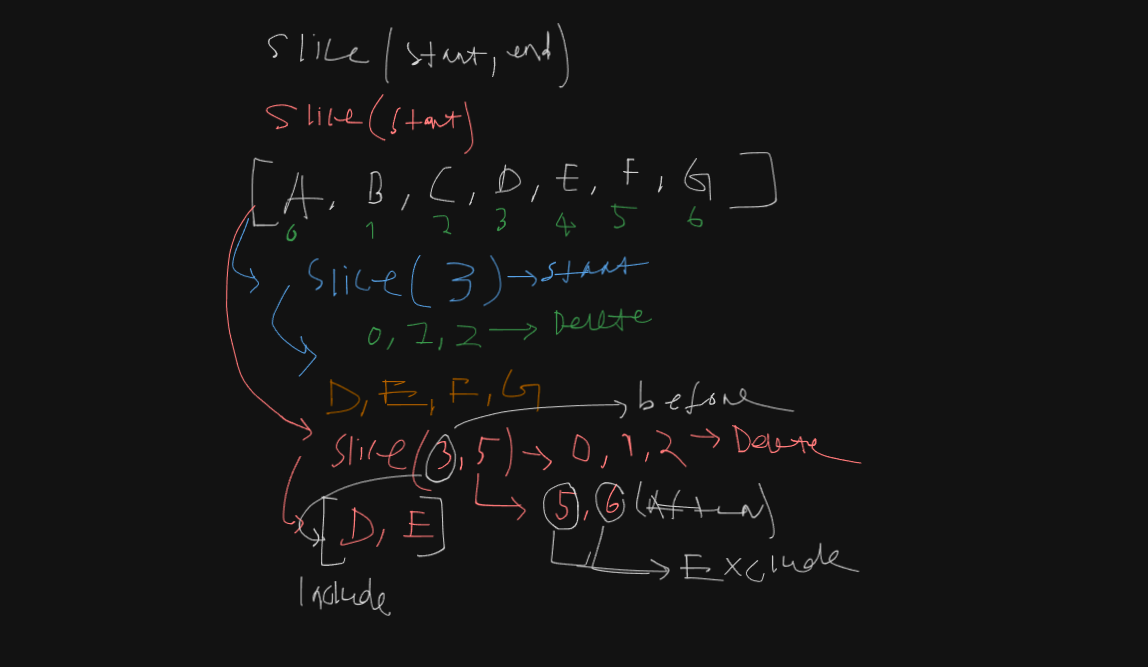 slice(start, end)
slice(start)
[A, B, C, D, E, F, G]
0 1 2 3 4 5 6
slice(3) → start
0, 1, 2 → Delete
D, E, F, G
→ before
slice(3, 5) → 0, 1, 2 → Delete
→ 5, 6 (After)
[D, E]
→ Exclude
Include